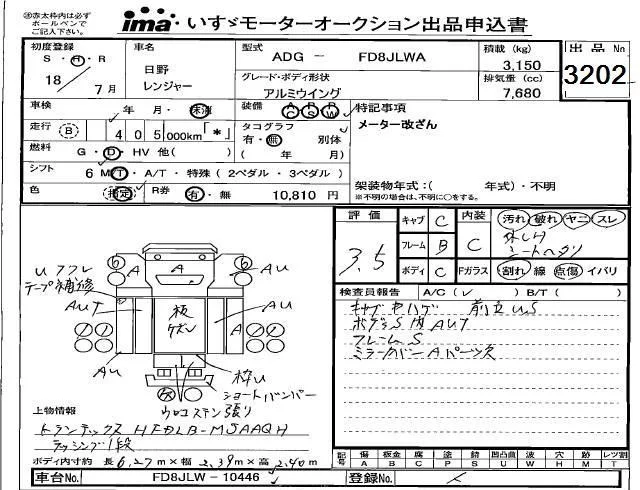 ※赤太枠内は必ず
ボールペンで
ご記入下さい。
ima いすゞモーターオークション出品申込書
初度登録 S・H・R 18 7月
車名 日野 レンジャー
型式 ADG － FD8JLWA
グレード・ボディ形状 アルミウイング
積載 (kg) 3,150
排気量 (cc) 7,680
出品No. 3202
車検 年 月・抹消
装備 AC PS PW
特記事項
メーター改ざん
走行 (B) 405000km「*」
タコグラフ 有・無 別体 ( 年 月)
燃料 G・D・HV 他( )
シフト 6 MT・A/T・特殊(2ペダル・3ペダル)
色 R券 有・無 10,810円
架装物年式:( 年式)・不明
※不明の場合は、不明に○をする。
評価 3.5
キャブ C
フレーム B
ボディ C
内装 C
汚れ 破れ ヤニ スレ
シートヘタリ
Fガラス 割れ 線 点傷 イバリ
検査員報告 A/C(✓) B/T( )
キャブ サハゲ
ボデーS 内AUT
フレームS
U フフレ
テープ補修
AU
AUT
板
A
枠U
ショートバンパー
ウロコステン張り
上物情報
トランテックス HFDLB-MJAAQH
ラッシング1段
ボディ内寸約 長6.27m×幅2.39m×高2.40m
記号 傷A 板金B 腐C 塗P 錆S 凹凸曲U 波W 穴H 跡M 欠K 割T レツ割D
車台No. FD8JLW－10446
登録No.